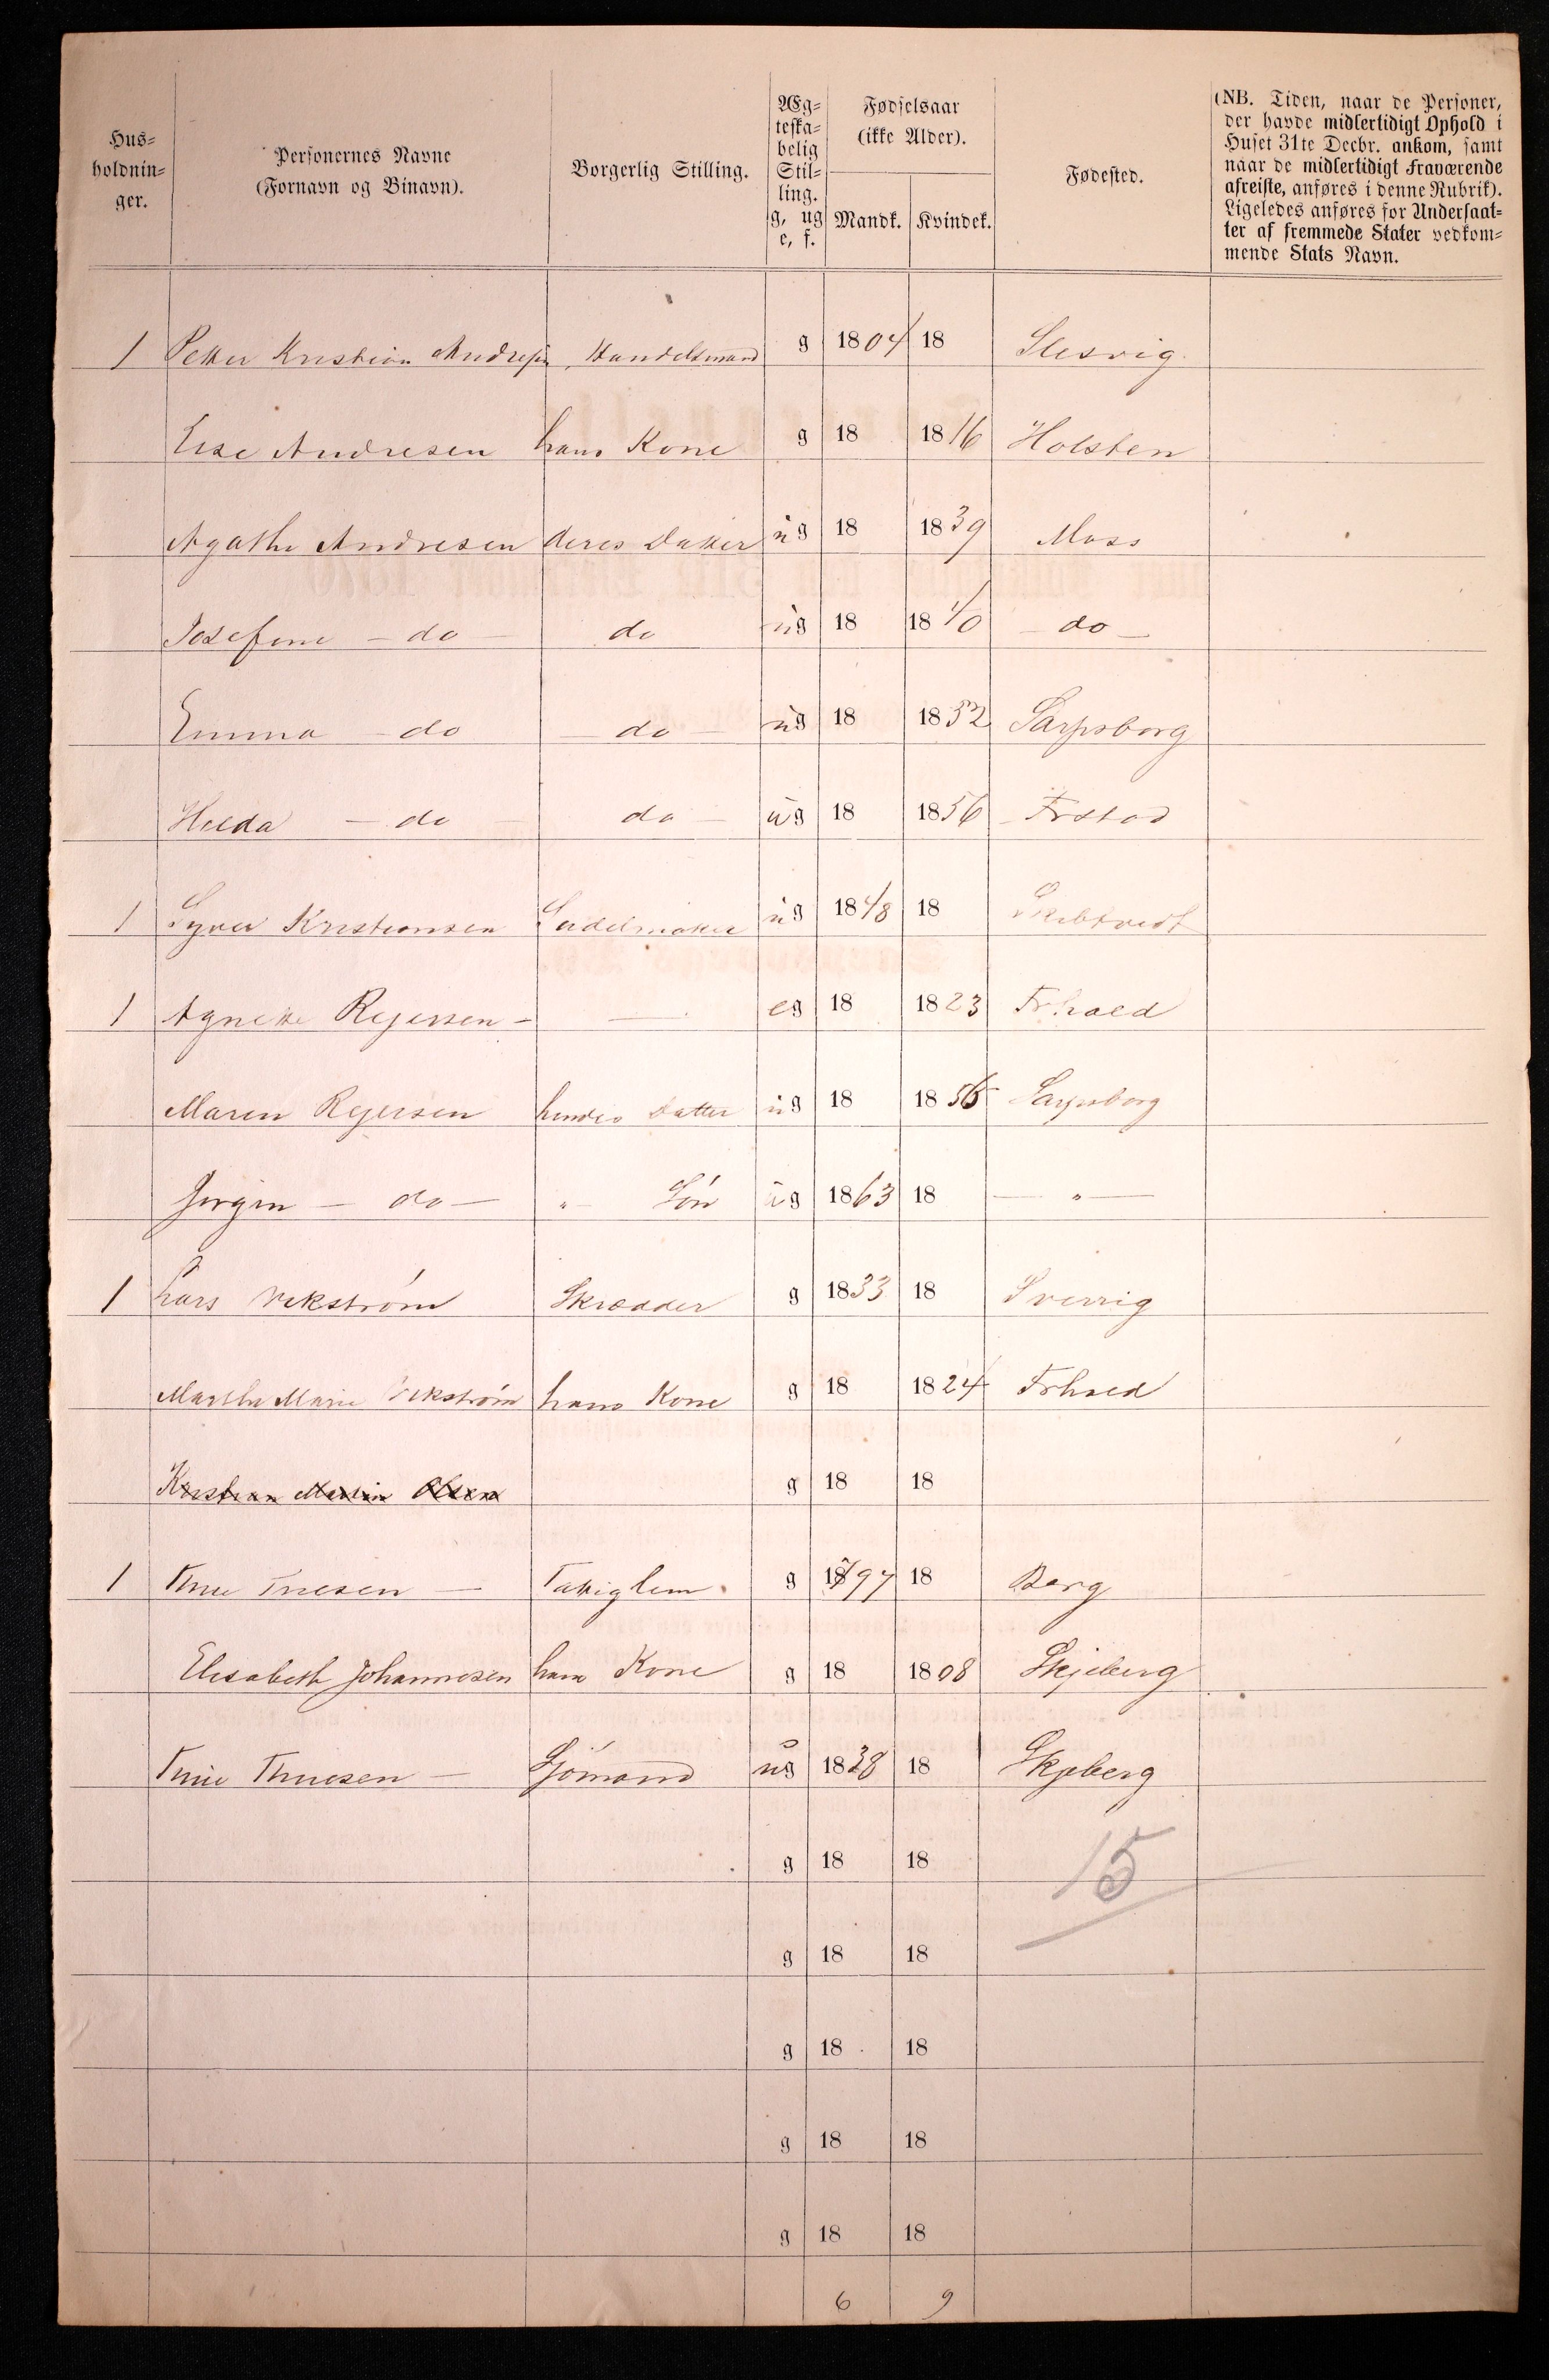 Hus-
holdnin-
ger.
Personernes Navne
(Fornavn og Binavn).
Borgerlig Stilling.
Æg-
teska-
belig
Stil-
ling.
g, ug
e, f.
Fødselsaar
(ikke Alder).
Mandk. Kvindek.
Fødested.
(NB. Tiden, naar de Personer,
der havde midlertidigt Ophold i
Huset 31te Decbr. ankom, samt
naar de midlertidigt Fraværende
afreiste, anføres i denne Rubrik).
Ligeledes anføres for Undersaat-
ter af fremmede Stater vedkom-
mende Stats Navn.
1 Petter Kristian Andresen Handelsmand g 1804 18 Slesvig
Lise Andresen hans Kone g 18 1816 Holsten
Agathe Andresen deres Datter ug 18 1839 Moss
Josefine - do - do ug 18 1840 - do -
Emma - do - do - ug 18 1852 Sarpsborg
Hulda - do - do - ug 18 1856 Frstad
1 Syver Kristiansen Sadelmaker ug 1848 18 Skibtvedt
1 Agnette Rejersen - — eg 18 1823 Frhald
Maren Rejersen hendes Datter ug 18 1856 Sarpsborg
Jørgen - do - " Sön ug 1863 18 — " —
1 Lars Vekström Skrædder g 1833 18 Sverrig
Martha Marie Vekström hans Kone g 18 1824 Frhald
Kristian Martin Olsen g 18 18
1 Tnie Tnesen — Fattiglem g 1797 18 Berg
Elisabeth Johannesen hans Kone g 18 1808 Skjeberg
Sjömand ug 1838 18 Skjeberg
g 18 18
15
g 18 18
g 18 18
g 18 18
g 18 18
6 9